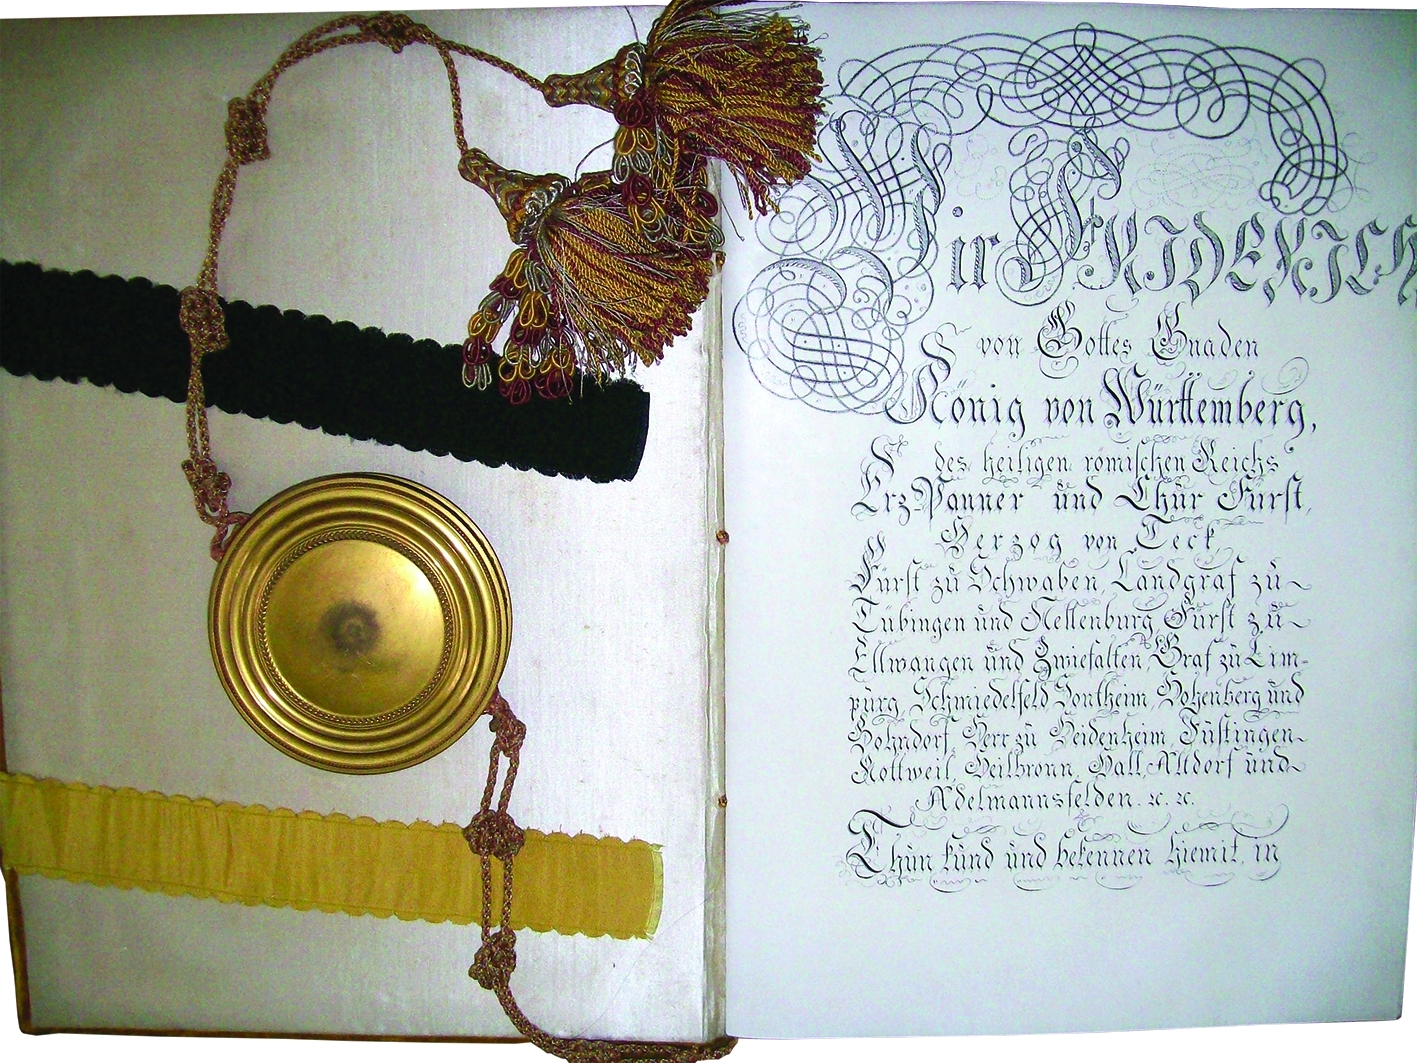 Wir FRIDERICH
von Gottes Gnaden
König von Württemberg,
des heiligen römischen Reichs
Erz-Panner und Chur Fürst,
Herzog von Teck,
Fürst zu Schwaben, Landgraf zu
Tübingen und Nellenburg, Fürst zu
Ellwangen und Zwiefalten, Graf zu Lim-
purg, Schmiedelfeld Sontheim, Hohenberg und
Bohndorf, Herr zu Heidenheim, Justingen
Rottweil, Heilbronn, Hall, Altdorf und
Adelmannsfelden. ꝛc. ꝛc.
Thun kund und bekennen hiemit, in